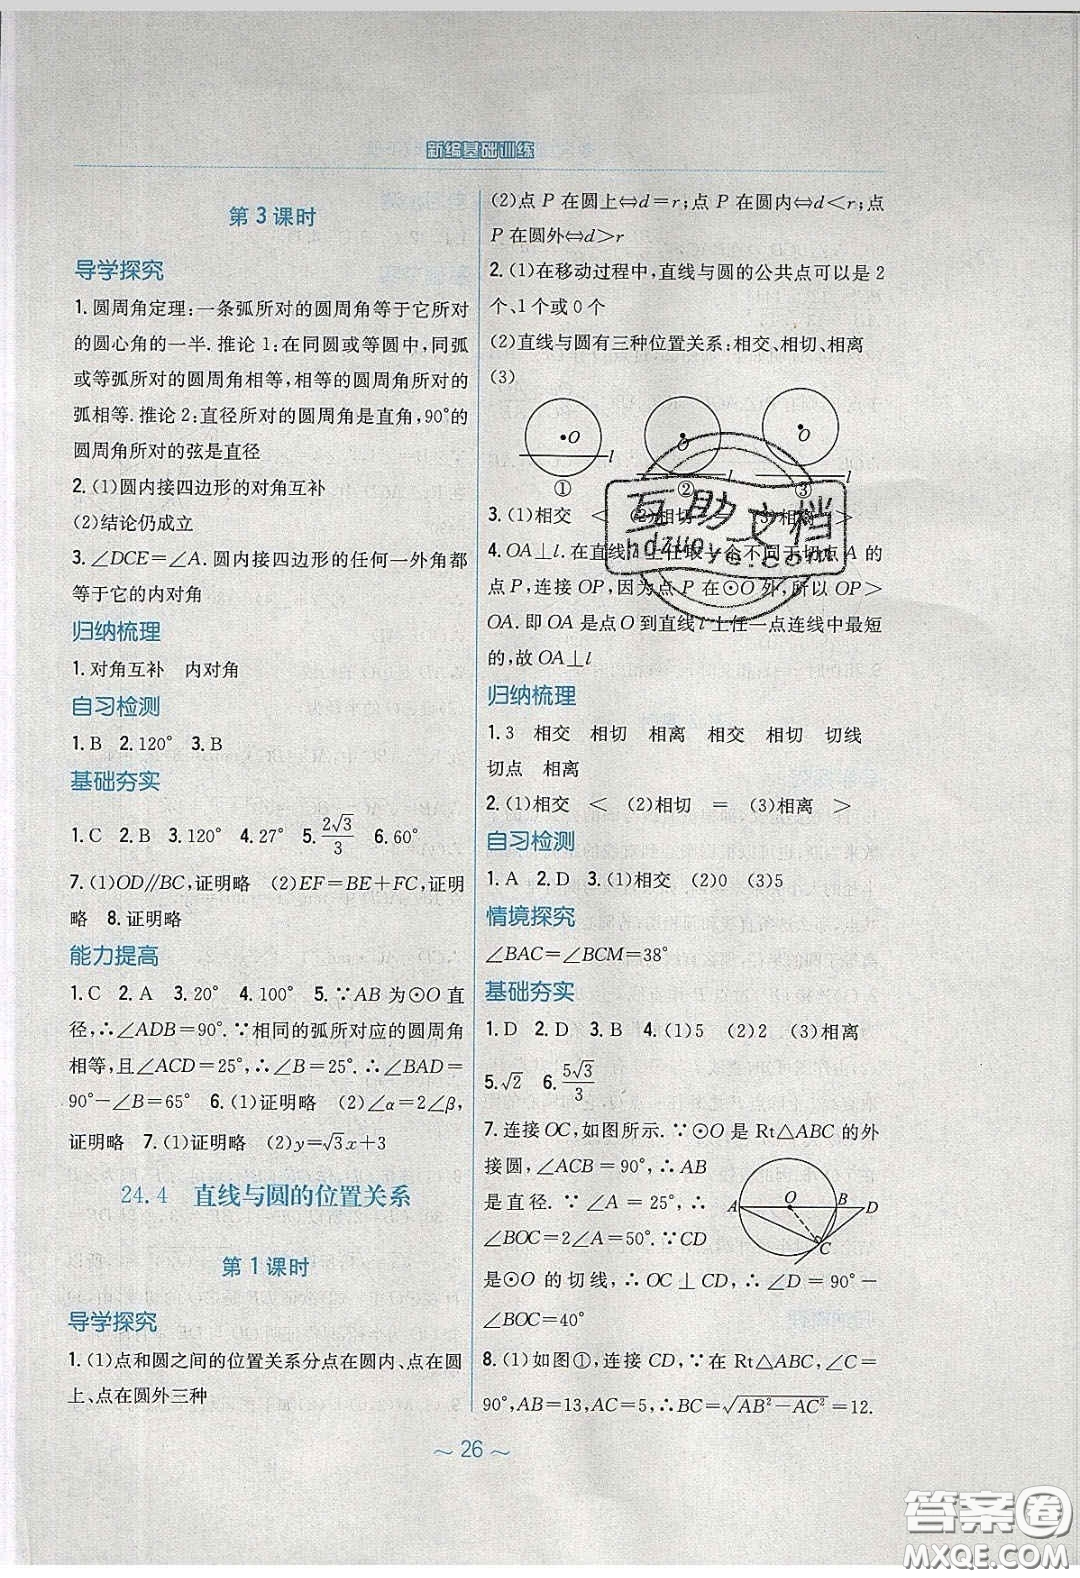 新编基础训练
第3课时
导学探究
1.圆周角定理:一条弧所对的圆周角等于它所对
的圆心角的一半.推论1:在同圆或等圆中,同弧
或等弧所对的圆周角相等,相等的圆周角所对的
弧相等.推论2:直径所对的圆周角是直角,90°的
圆周角所对的弦是直径
2.(1)圆内接四边形的对角互补
(2)结论仍成立
3.∠DCE=∠A.圆内接四边形的任何一外角都
等于它的内对角
归纳梳理
1.对角互补 内对角
自习检测
1.B 2.120° 3.B
基础夯实
1.C 2.B 3.120° 4.27° 5.2√3/3 6.60°
7.(1)OD∥BC,证明略 (2)EF=BE+FC,证明
略 8.证明略
能力提高
1.C 2.A 3.20° 4.100° 5.∵AB为⊙O直
径,∴∠ADB=90°.∵相同的弧所对应的圆周角
相等,且∠ACD=25°,∴∠B=25°.∴∠BAD=
90°-∠B=65° 6.(1)证明略 (2)∠α=2∠β,
证明略 7.(1)证明略 (2)y=√3x+3
24.4 直线与圆的位置关系
第1课时
导学探究
1.(1)点和圆之间的位置关系分点在圆内、点在圆
上、点在圆外三种
(2)点P在圆上⇔d=r;点P在圆内⇔d<r;点
P在圆外⇔d>r
2.(1)在移动过程中,直线与圆的公共点可以是2
个、1个或0个
(2)直线与圆有三种位置关系:相交、相切、相离
(3)
O O O
l l l
① ② ③
3.(1)相交 < (2)相切 = (3)相离 >
4.OA⊥l.在直线l上任取一个不同于切点A的
点P,连接OP,因为点P在⊙O外,所以OP>
OA.即OA是点O到直线l上任一点连线中最短
的,故OA⊥l
归纳梳理
1.3 相交 相切 相离 相交 相切 切线
切点 相离
2.(1)相交 < (2)相切 = (3)相离 >
自习检测
1.A 2.D 3.(1)相交 (2)0 (3)5
情境探究
∠BAC=∠BCM=38°
基础夯实
1.D 2.D 3.B 4.(1)5 (2)2 (3)相离
5.√2 6.5√3/3
7.连接OC,如图所示.∵⊙O是Rt△ABC的外
接圆,∠ACB=90°,∴AB
是直径.∵∠A=25°,∴
∠BOC=2∠A=50°.∵CD
是⊙O的切线,∴OC⊥CD,∴∠D=90°-
∠BOC=40°
A O B D
C
8.(1)如图①,连接CD,∵在Rt△ABC,∠C=
90°,AB=13,AC=5,∴BC=√(AB²-AC²)=12.
~ 26 ~
互助文档
hdzuoye.com
答案圈
MXQE.COM